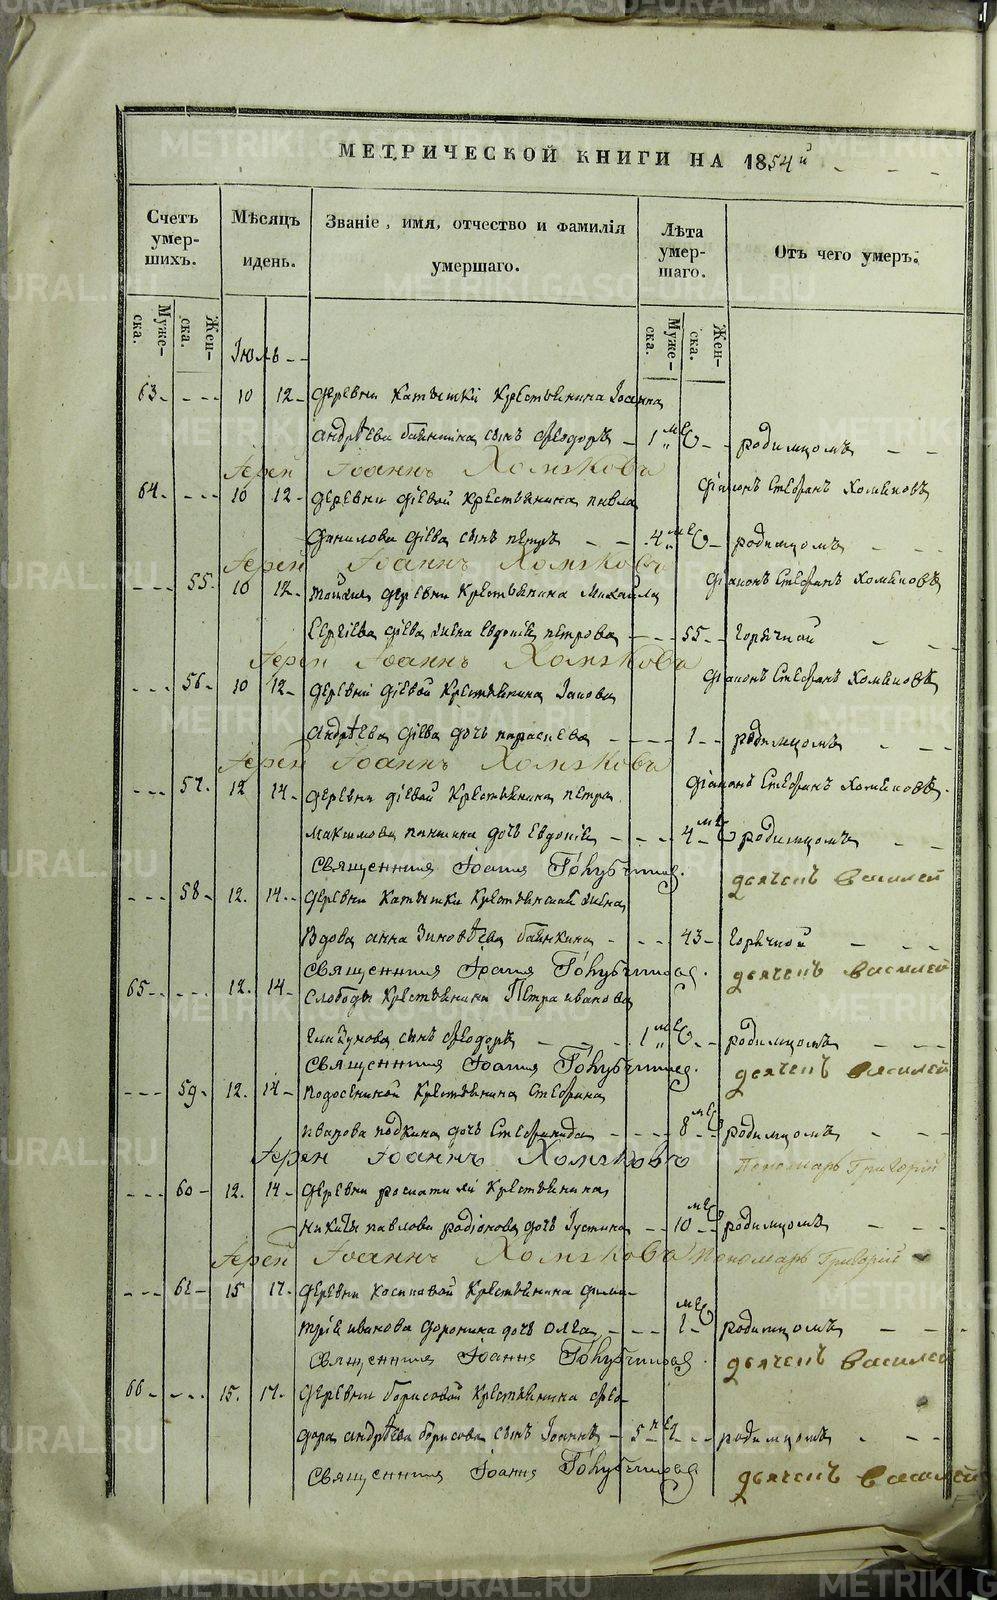 МЕТРИЧЕСКОЙ КНИГИ НА 1854й
Счетъ умер-шихъ.
Мѣсяцъ идень.
Званіе, имя, отчество и фамилія умершаго.
Лѣта умер-шаго.
Отъ чего умеръ.
Муже-ска.
Жен-ска.
Муже-ска.
Жен-ска.
Іюль
63 10 12 деревни Катышки крестьянина Іоанна
Андрѣева сынъ Ѳеодоръ 1 мѣс родимцомъ
Іерей Іоаннъ Хомяковъ
64 10 12 деревни діевой крестьянина павла
Діаконъ Стефанъ Хомяковъ
данилова діева сынъ петръ 4 мѣс родимцомъ
Іерей Іоаннъ Хомяковъ
Діаконъ Стефанъ Хомяковъ
55 10 12 тойже деревни крестьянина Михайла
Сергіева діева жена Евдокія петрова 55 горячкой
Іерей Іоаннъ Хомяковъ
Діаконъ Стефанъ Хомяковъ
56 10 12 деревни діевой крестьянина Іакова
Андрѣева діева дочь параскева 1 родимцомъ
Іерей Іоаннъ Хомяковъ
Діаконъ Стефанъ Хомяковъ
57 12 14 деревни діевой крестьянина петра
Максимова дочь Евдокія 4 мѣс родимцомъ
Священникъ Іоаннъ
дьячекъ Василей
58 12 14 деревни Катышки крестьянская жена
Вдова анна Зиновѣева 43 горячкой
Священникъ Іоаннъ
дьячекъ Василей
65 12 14 Слободы крестьянина Петра иванова
сынъ Ѳеодоръ 1 мѣс родимцомъ
Священникъ Іоаннъ
дьячекъ Василей
59 12 14 крестьянина Стефана
иванова дочь Стефанида 8 мѣс родимцомъ
Іерей Іоаннъ Хомяковъ
Пономарь Григорій
60 12 14 деревни крестьянина
никиты павлова радіонова дочь Іустина 10 мѣс родимцомъ
Іерей Іоаннъ Хомяковъ Пономарь Григорій
61 15 17 деревни крестьянина дими-
трія иванова доронина дочь Олга 1 мѣс родимцомъ
Священникъ Іоаннъ
дьячекъ Василей
66 15 17 деревни борисовой крестьянина Ѳео
дора андрѣева борисова сынъ Іоаннъ 5 родимцомъ
Священникъ Іоаннъ
дьячекъ Василей
METRIKI.GASO-URAL.RU